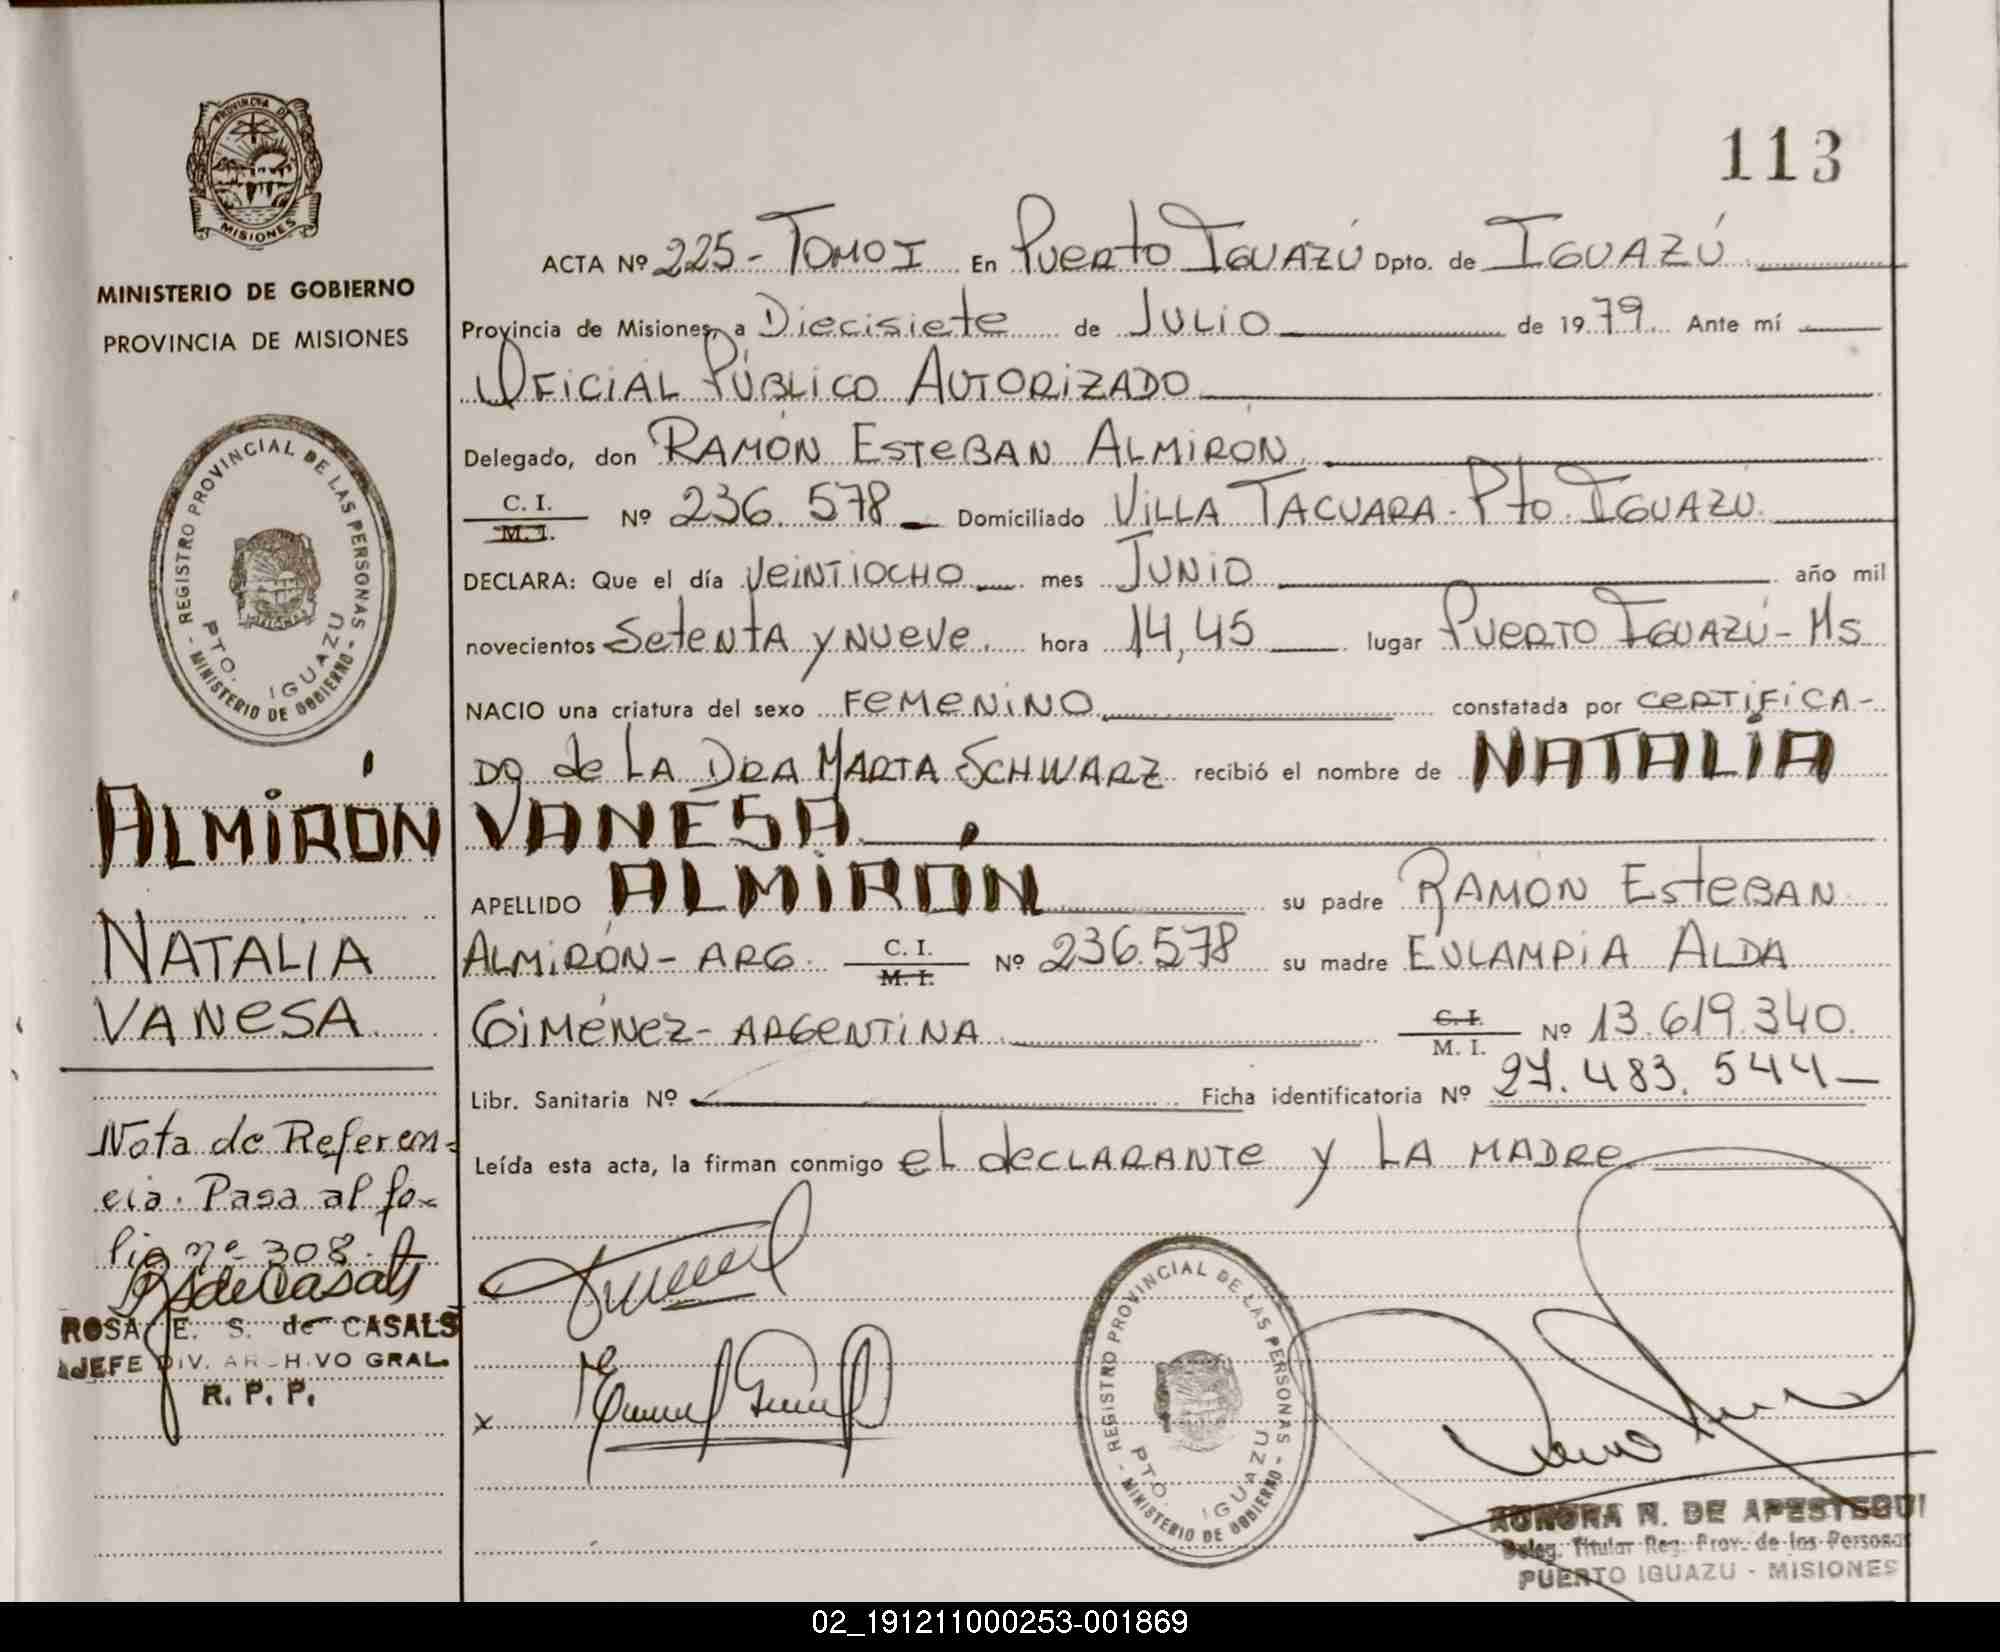 113
PROVINCIA DE
MISIONES
MINISTERIO DE GOBIERNO
PROVINCIA DE MISIONES
- REGISTRO PROVINCIAL DE LAS PERSONAS -
PTO. IGUAZU
MINISTERIO DE GOBIERNO
ALMIRÓN
NATALIA
VANESA
Nota de Referen=
cia. Pasa al fo=
lio nº 308.
RSdeCasals
ROSA E. S. de CASALS
JEFE DIV. ARCHIVO GRAL.
R. P. P.
ACTA Nº 225 - TOMO I En Puerto Iguazú Dpto. de IGUAZÚ
Provincia de Misiones, a Diecisiete de JULIO de 1979. Ante mí
OFICIAL PÚBLICO AUTORIZADO
Delegado, don RAMÓN ESTEBAN ALMIRÓN.
C. I.
M. I. Nº 236.578 Domiciliado VILLA TACUARA - Pto. IGUAZÚ.
DECLARA: Que el día VEINTIOCHO mes JUNIO año mil
novecientos Setenta y nueve. hora 14,45 lugar PUERTO IGUAZÚ - Ms
NACIO una criatura del sexo FEMENINO constatada por CERTIFICA-
DO de LA DRA MARTA SCHWARZ recibió el nombre de NATALIA
VANESA
APELLIDO ALMIRÓN su padre RAMÓN ESTEBAN
ALMIRÓN - ARG. C. I.
M. I. Nº 236.578 su madre EULAMPIA ALDA
GIMÉNEZ - ARGENTINA C. I.
M. I. Nº 13.619.340.
Libr. Sanitaria Nº Ficha identificatoria Nº 27.483.544
Leída esta acta, la firman conmigo el declarante y LA MADRE
x
- REGISTRO PROVINCIAL DE LAS PERSONAS -
PTO. IGUAZU
MINISTERIO DE GOBIERNO
AURORA N. DE APESTEGUI
Deleg. Titular Reg. Prov. de las Personas
PUERTO IGUAZU - MISIONES
02_191211000253-001869